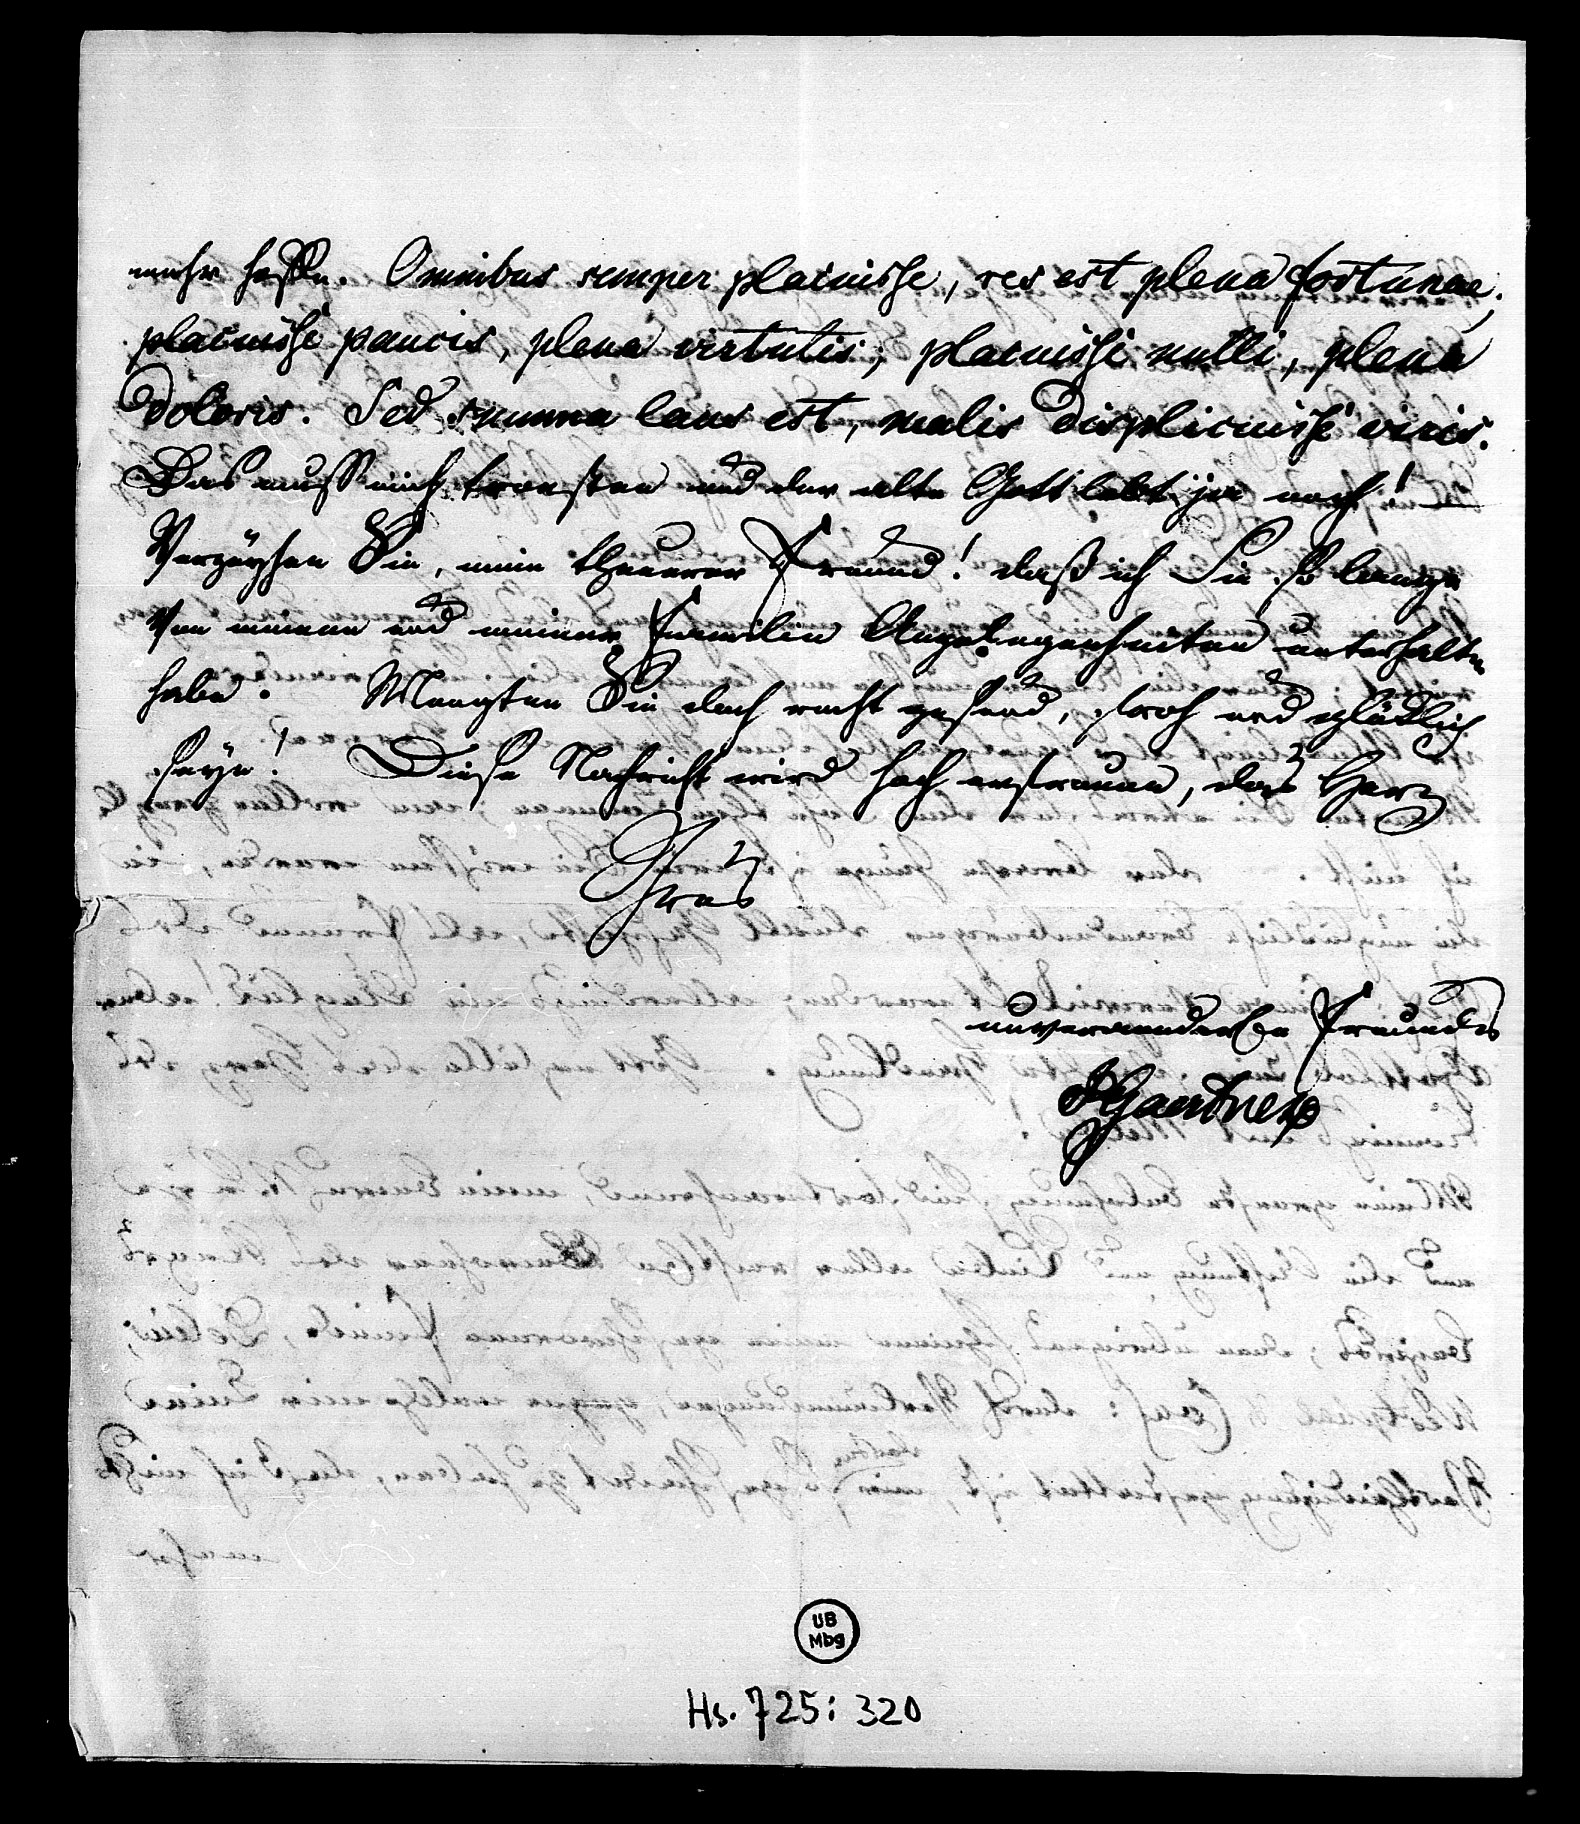 mehr hoffe. Omnibus semper placuisse, res est plena fortunae;
placuisse paucis, plena virtutis; placuisse nulli, plena
doloris. Sed summa laus est, malis displicuisse viris.
Das muss mich troesten und der alte Gott lebt ja noch! –
Verzeyhen Sie, mein theuerer Freund! daß ich Sie so lange
von meinen und meiner Familie Angelegenheiten unterhalten
habe. Moegten Sie doch recht gesund, froh und glücklich
seyn! Diese Nachricht wird hoch erfreuen, das Herz
Ihres
unveraenderten Freundes
Gaertner
UB
Mbg
Hs. 725: 320